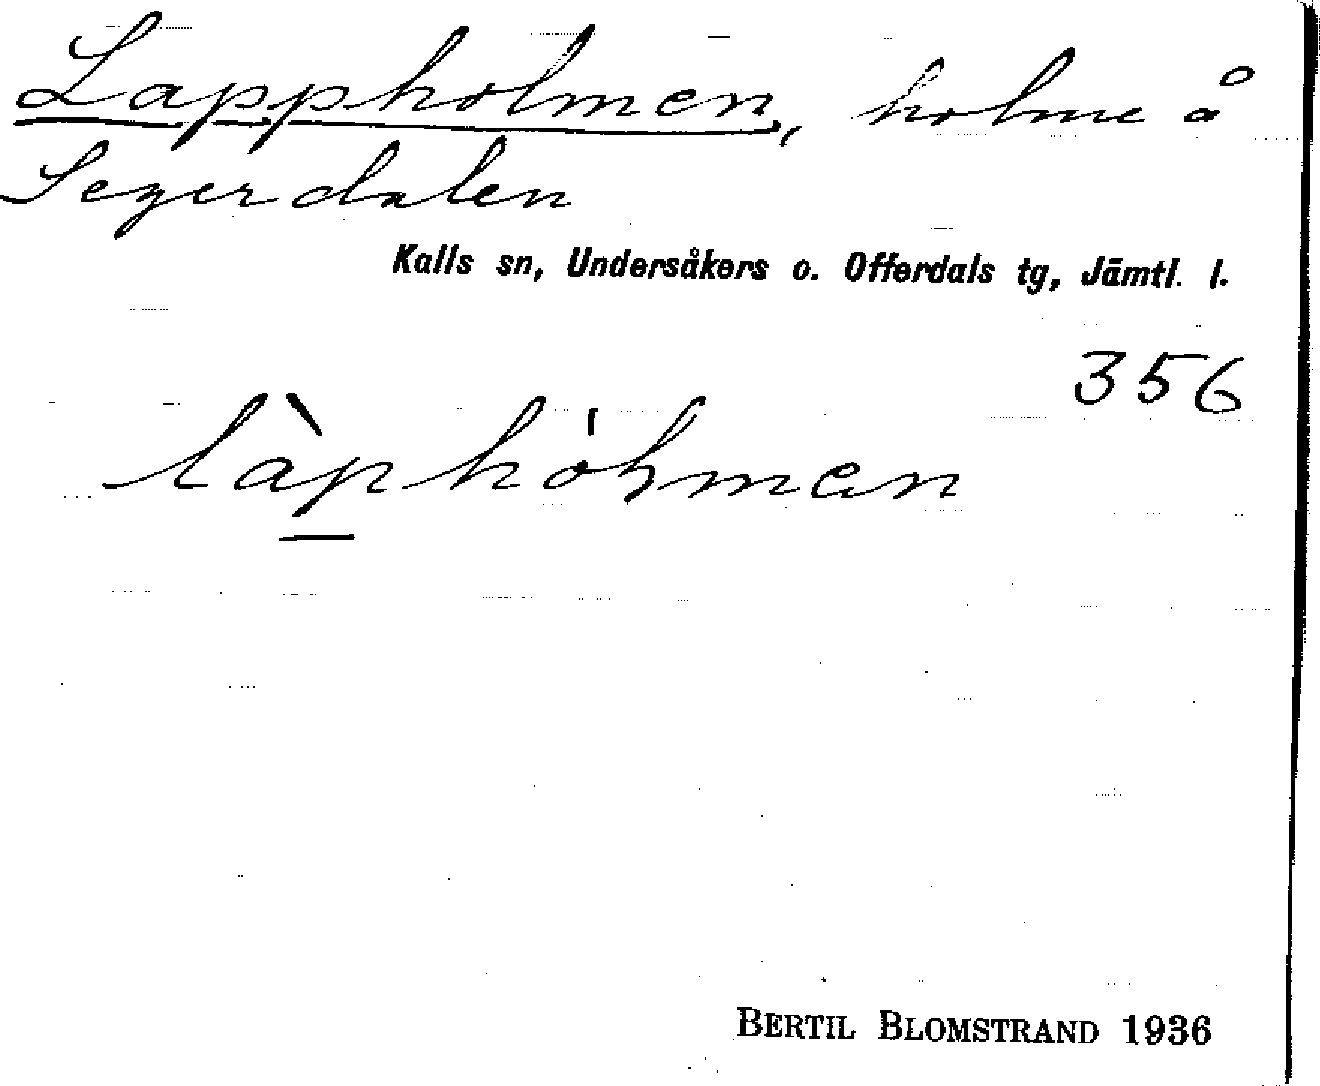 Lappholmen, holme å
Segerdalen
Kalls sn, Undersåkers o. Offerdals tg, Jämtl. l.
356
BERTIL BLOMSTRAND 1936